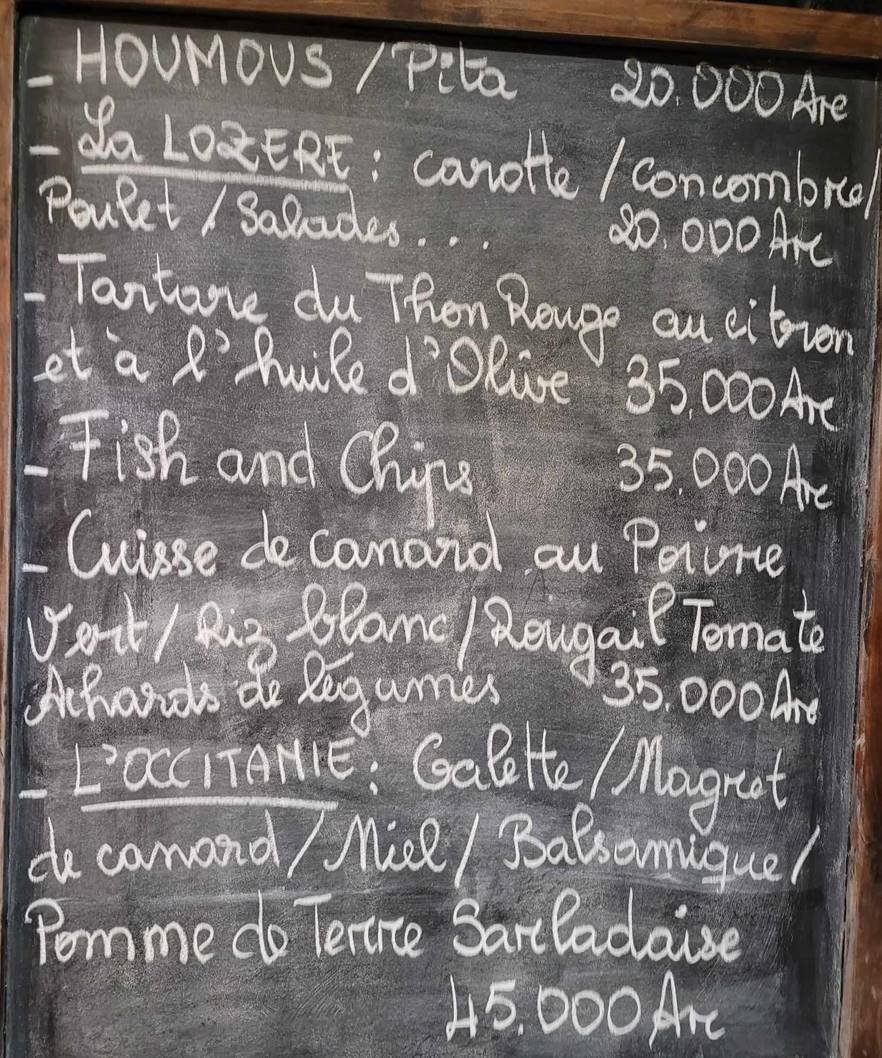 - HOUMOUS / Pita 20.000 Are
- La LOZERE : carotte / Concombre /
Poulet / Salades... 20.000 Are
- Tartare du Thon Rouge au citron
et à l'huile d'Olive 35.000 Are
- Fish and Chips 35.000 Are
- Cuisse de canard au Poivre
Vert / Riz blanc / Rougail Tomate
Achards de légumes 35.000 Are
- L'OCCITANIE : Galette / Magret
de canard / Miel / Balsamique /
Pomme de Terre Sarladaise
45.000 Are